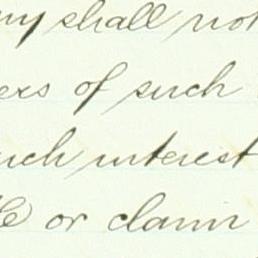 ny shall not
ers of such
uch interest
or claim